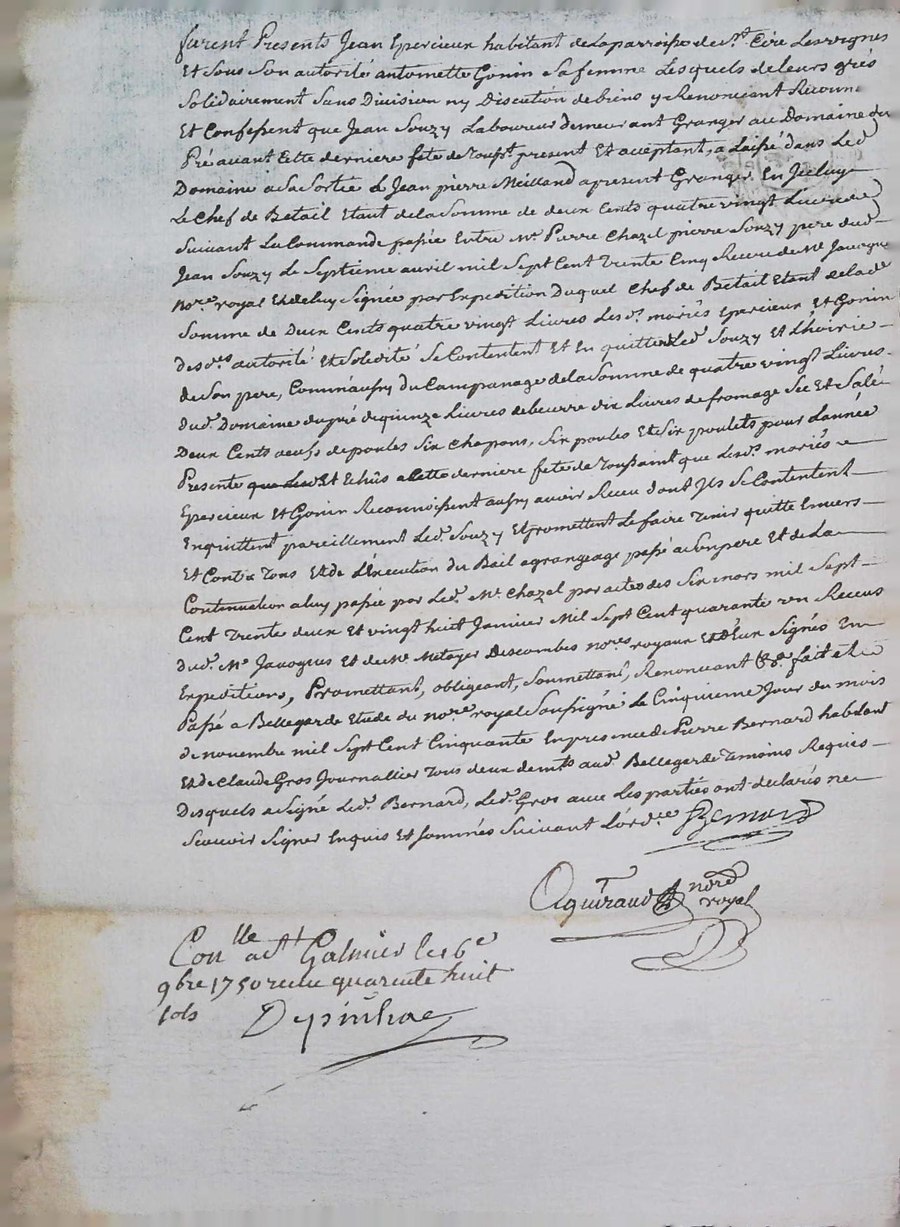 furent Presents Jean Epercieux habitant de La parroisse de St. Cire Les vignes
Et Sous Son autorité antoinette Gonin Sa femme Lesquels de leurs grés
Solidairement Sans Division ny Discution de biens y Renoncant Reconn
Et Confessent que Jean Souzy Laboureur demeurant Granger au Domaine du
Pré avant Cette derniere fete de Toust. present Et acceptant, a Laissé dans Led.
Domaine a Sa Sortie a Jean pierre Meilland apresent Granger En Jceluy
Le Chef de Betail Etant de la Somme de deux Cents quatre vingt Livres
Suivant La Commande passée Entre Me. Pierre Chazel pierre Souzy pere dud.
Jean Souzy Le Septieme avril mil Sept Cent Trente Cinq Receue de Me Javogue
Nore. royal Et de luy Signée par Expedition Duquel Chef de Betail Etant de lad.
Somme de Deux Cents quatre vingt Livres Lesd. mariés Epercieux Et Gonin
desd. autorité Et Solidité Se Contentent Et En quittent Led. Souzy Et L'hoirie
de Son pere, Comm'aussy du Campanage de la Somme de quatre vingt Livres
dud. Domaine du pré de quinze Livres de beurre dix Livres de fromage Sec Et Salé
Deux Cents oeufs de poules Six Chapons, Six poules Et Six poulets pour L'année
Presente Et Echûs a Cette derniere fete de Toussaint que Lesd. mariés
Epercieux Et Gonin Reconnoissent aussy avoir Receu dont Jls Se Contentent
Enquittent pareillement Led. Souzy Et promettent Le faire Tenir quitte Envers
Et Contre Tous Et de L'Execution du Bail a grangeage passé a Son pere Et de La
Continuation a luy passée par Led. Me. Chazel par actes des Six mars mil Sept
Cent Trente deux Et vingt huit Janvier Mil Sept Cent quarante un Receus
dud. Me Javogues Et de Me Metayer Descombes nores royaux Et d'Eux Signés Em
Expeditions, Promettans, obligeant, Soumettans, Renoncant &a. fait et
Passé a Bellegarde Etude du nore. royal Soussigné Le Cinquieme Jour du mois
de novembre mil Sept Cent Cinquante En presence de Pierre Bernard habitant
Et de Claude Gros Journallier Tous deux demts. aud. Bellegarde Temoins Requis
Desquels a Signé Led. Bernard, Led. Gros avec Les parties ont declarés ne
Scavoir Signer Enquis Et Sommés Suivant L'ord.ce Bernard
Aguiraud nore
royal
Conlle a St Galmier le 6e
9bre 1750 recu quarente huit
sols Depinhac